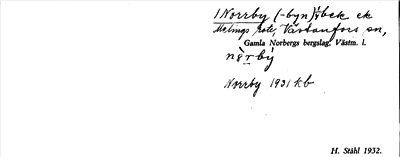 1 Norrby (-byn) bek ek
Malings rote, Västanfors sn,
Gamla Norbergs bergslag, Västm. l.
Norrby 1931 kb
H. Ståhl 1932.